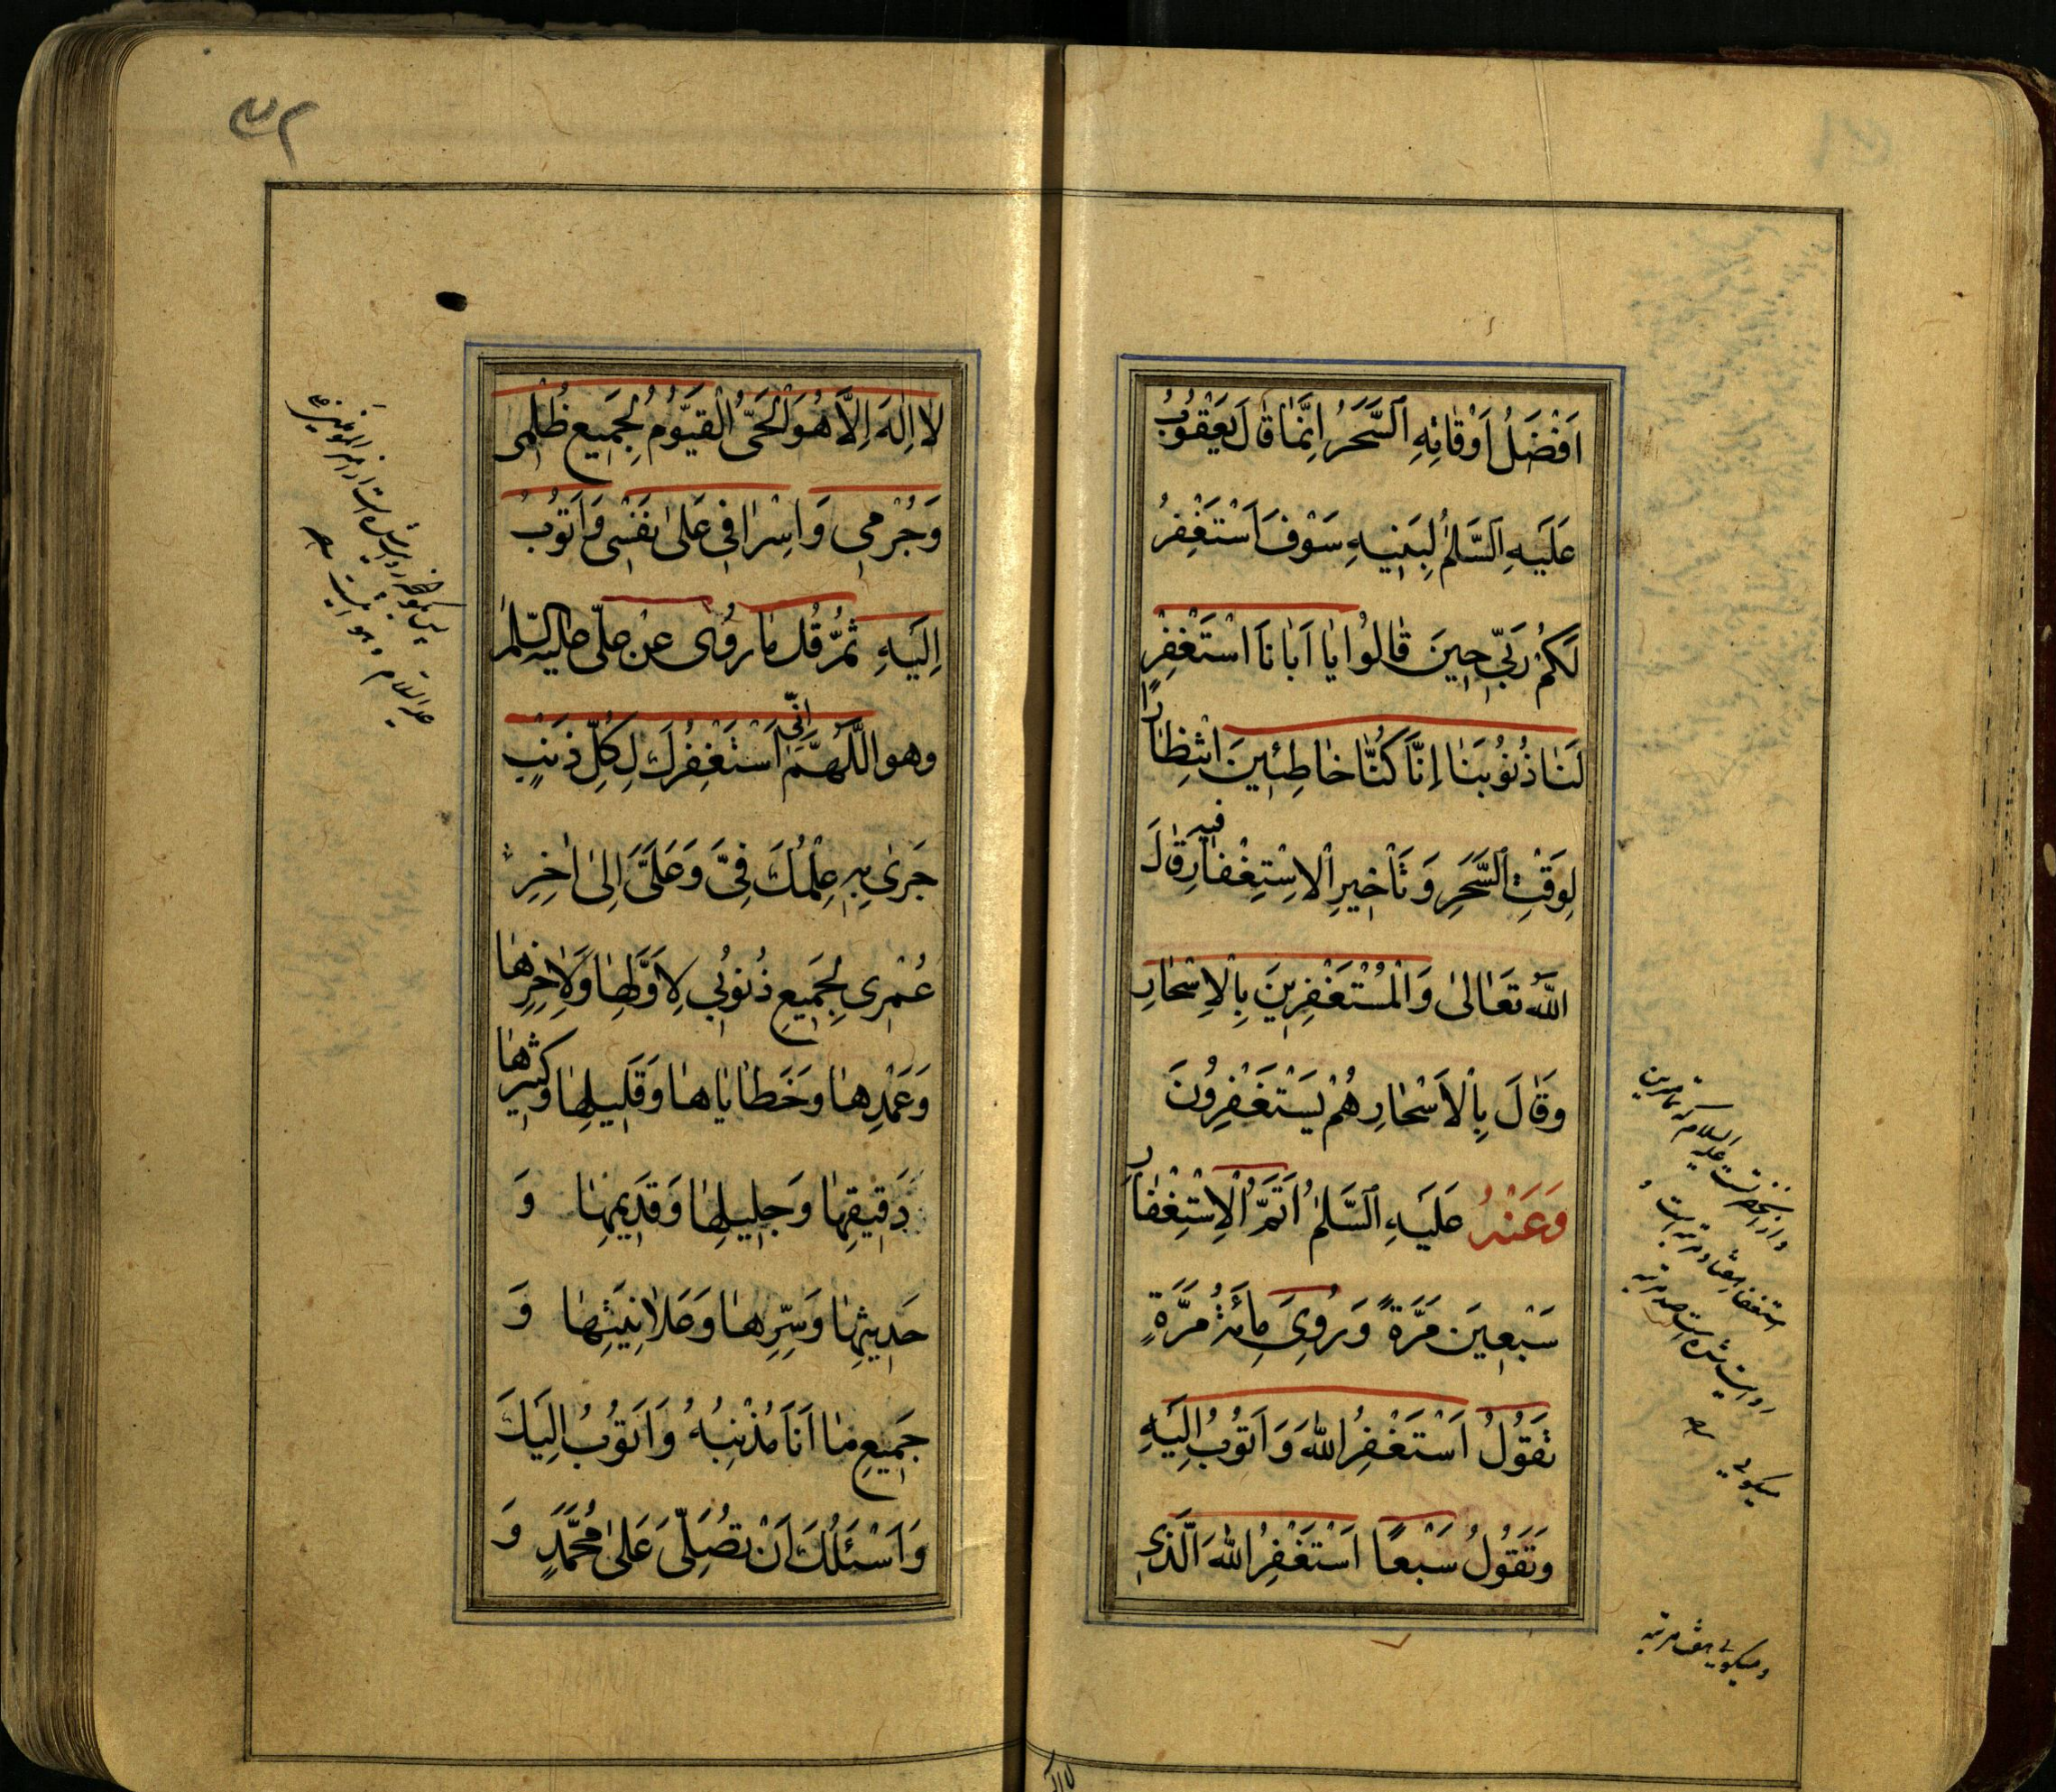 اَفْضَلُ اَوْقاتِهِ السَّحَرُ اِنَّما قالَ يَعْقُوبُ
عَلَيهِ السَّلٰمُ لِبَنيهِ سَوْفَ اَسْتَغْفِرُ
لَكُمْ رَبّي حينَ قالُوا يا اَبانَا اسْتَغْفِرْ
لَنا ذُنُوبَنا اِنَّا كُنَّا خاطِئينَ انْتِظاراً
لِوَقْتِ السَّحَرِ وَ تَأْخيرِ الاِسْتِغْفارِ فيهِ قالَ
اللهُ تَعالىٰ وَالْمُسْتَغْفِرينَ بِالاَسْحارِ
وَقالَ بِالاَسْحارِ هُمْ يَسْتَغْفِرُونَ
وَعَنْهُ عَلَيهِ السَّلٰمُ اَتَمُّ الْاِسْتِغْفارِ
سَبْعينَ مَرَّةً وَ رُوِيَ مِائَةُ مَرَّةٍ
تَقُولُ اَسْتَغْفِرُ اللهَ وَ اَتُوبُ اِلَيهِ
وَتَقُولُ سَبْعاً اَسْتَغْفِرُ اللهَ الَّذي
واز آنحضرت عليه السلام كه تمامترين
استغفار هفتاد مرتبه است و
روايت شده است صد مرتبه
ميگويى
و ميگويى هفت مرتبه
٣٢
لا اِلٰهَ اِلَّا هُوَ الْحَىُّ الْقَيُّومُ لِجَميعِ ظُلْمى
وَجُرْمي وَ اِسْرافي عَلىٰ نَفْسى وَ اَتُوبُ
اِلَيهِ ثُمَّ قُل ما رُوِىَ عَنْ عَلّى عليه السّلٰم
وهو اللّٰهُمَّ اِنّي اَسْتَغْفِرُكَ لِكُلِّ ذَنْبٍ
جَرىٰ بِهِ عِلْمُكَ فِىَّ وَ عَلَىَّ اِلىٰ اٰخِرِ
عُمْرى بِجَميعِ ذُنُوبى لِاَوَّلِها وَلاٰخِرِها
وَعَمْدِها وَ خَطاياها وَ قَليلِها وَكَثيرِها
دَقيقِها وَ جَليلِها وَ قَديمِها وَ
حَديثِها وَ سِرِّها وَ عَلانِيَتِها وَ
جَميعِ ما اَنَا مُذْنِبُهُ وَ اَتُوبُ اِلَيكَ
وَ اَسْئَلُكَ اَنْ تُصَلِّىَ عَلىٰ مُحَمَّدٍ وَ
عليه السلام و